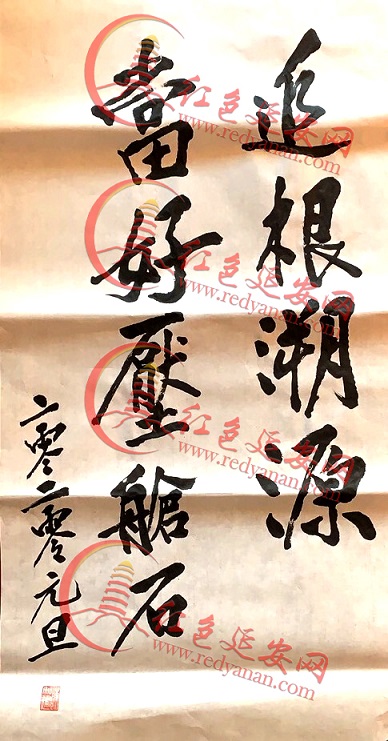 追根溯源
當好壓艙石
二零二零元旦
红色延安网
www.redyanan.com
红色延安网
www.redyanan.com
红色延安网
www.redyanan.com
红色延安网
www.redyanan.com